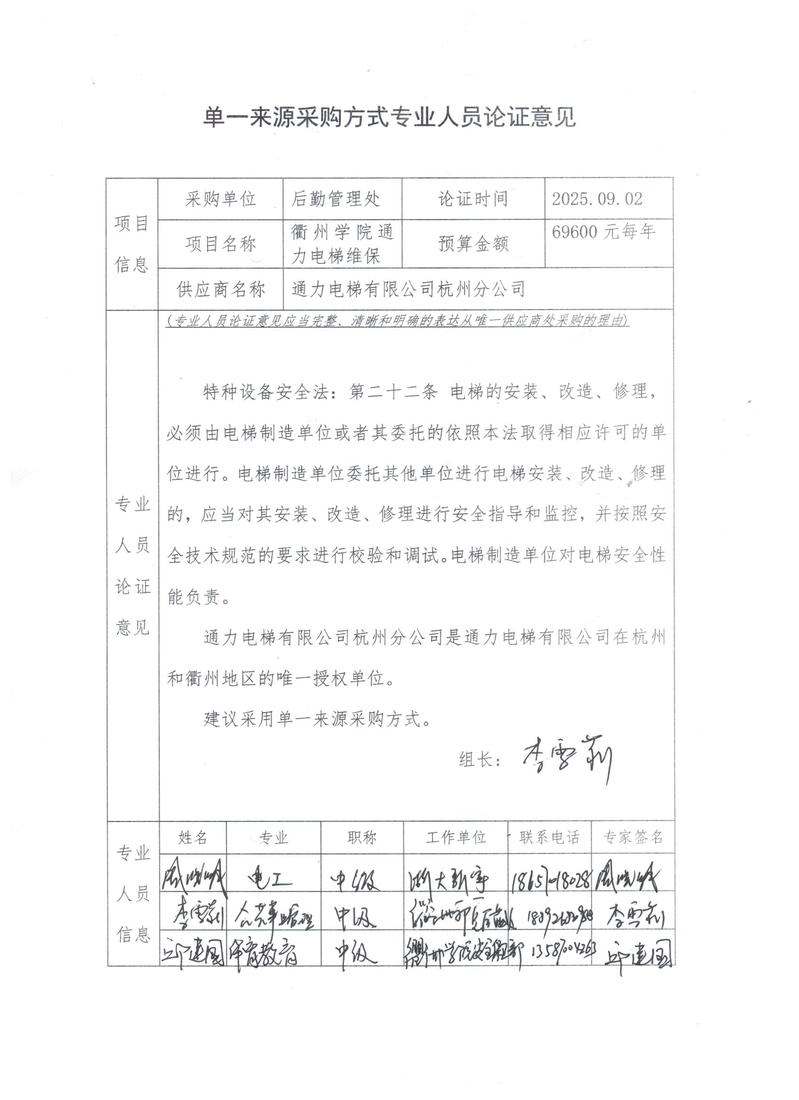 单一来源采购方式专业人员论证意见
项目信息
采购单位 后勤管理处 论证时间 2025.09.02
项目名称 衢州学院通力电梯维保 预算金额 69600 元每年
供应商名称 通力电梯有限公司杭州分公司
(专业人员论证意见应当完整、清晰和明确的表达从唯一供应商处采购的理由)
专业人员论证意见
特种设备安全法：第二十二条 电梯的安装、改造、修理，
必须由电梯制造单位或者其委托的依照本法取得相应许可的单
位进行。电梯制造单位委托其他单位进行电梯安装、改造、修理
的，应当对其安装、改造、修理进行安全指导和监控，并按照安
全技术规范的要求进行校验和调试。电梯制造单位对电梯安全性
能负责。
通力电梯有限公司杭州分公司是通力电梯有限公司在杭州
和衢州地区的唯一授权单位。
建议采用单一来源采购方式。
组长： 李雪莉
专业人员信息
姓名 专业 职称 工作单位 联系电话 专家签名
电工 中级 浙大新宇
李雪莉 公共事业管理 中级 李雪莉
邱建国 体育教育 中级 邱建国